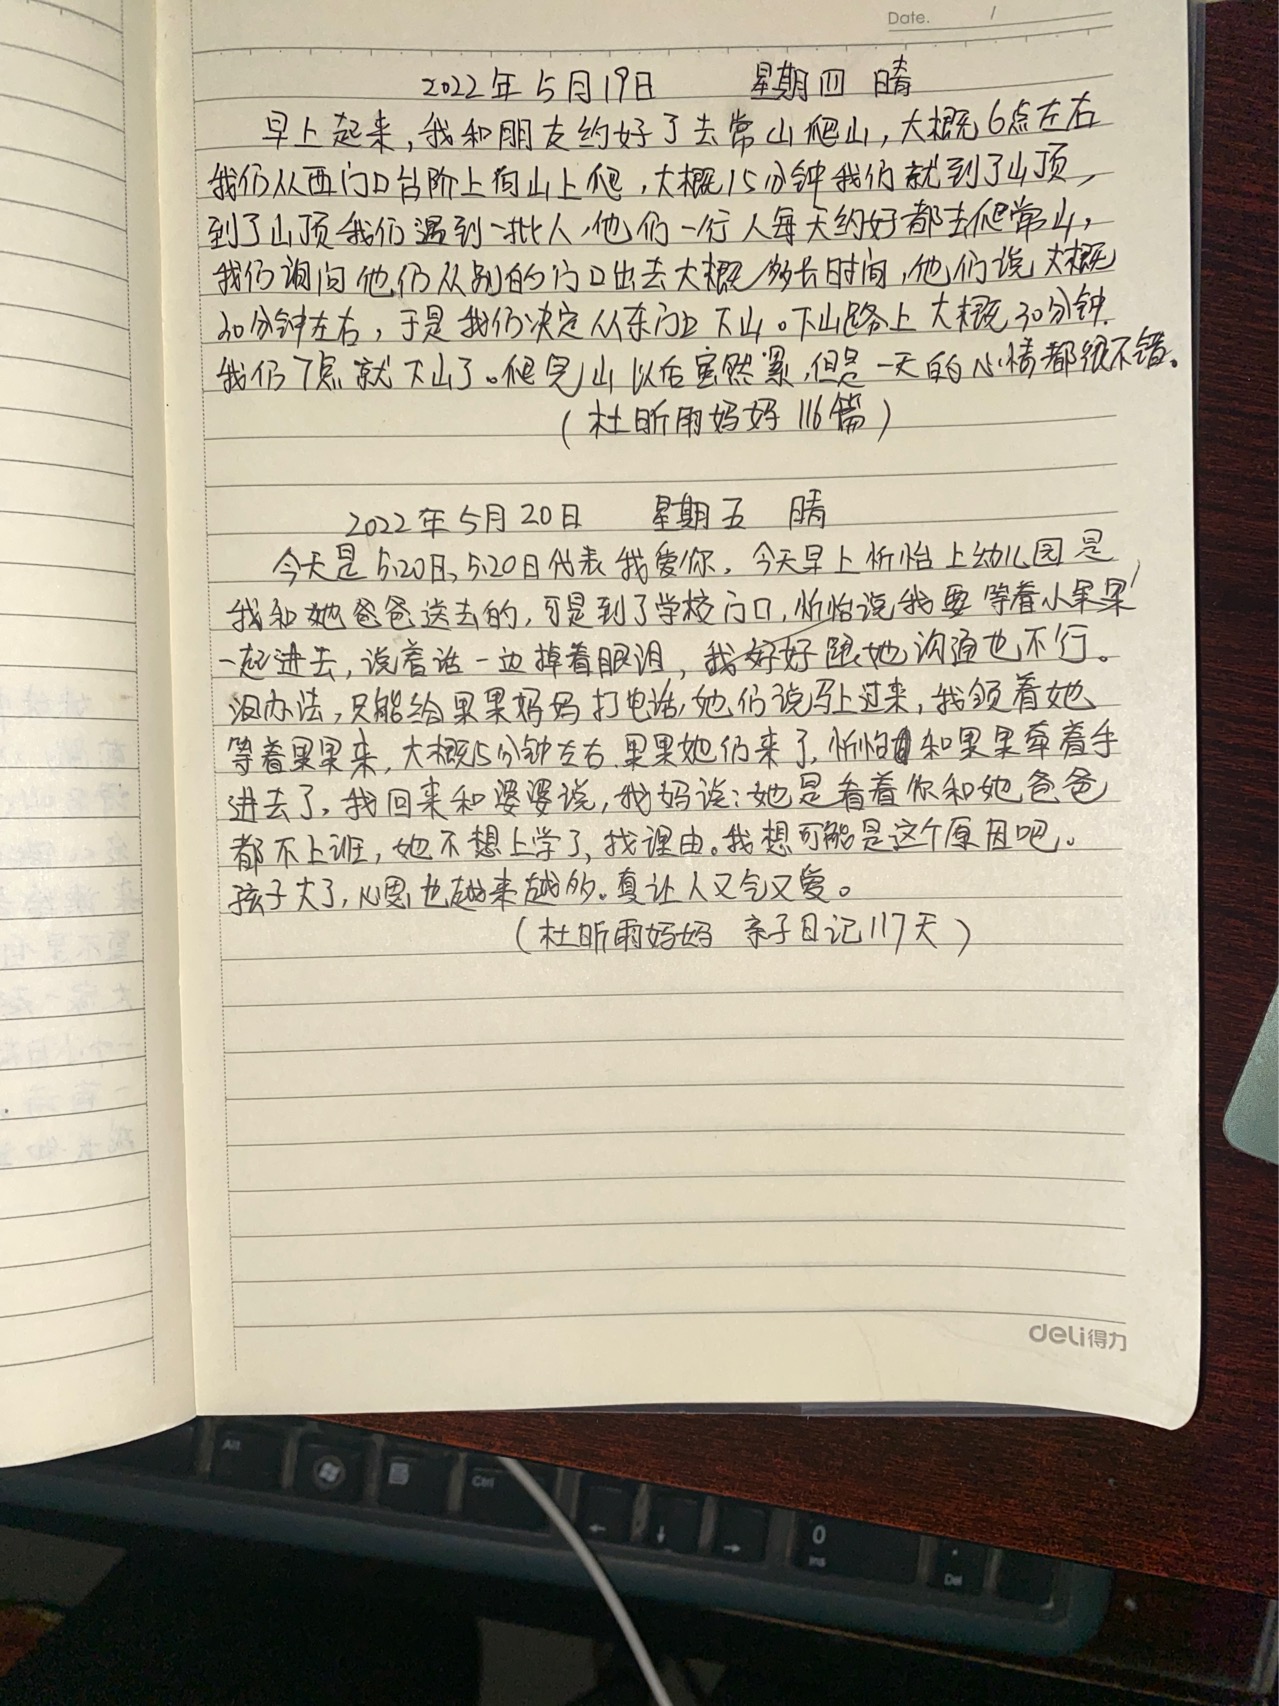 Date. /
2022年5月19日 星期四 晴
早上起来，我和朋友约好了去常山爬山，大概6点左右
我们从西门口台阶上向山上爬，大概15分钟我们就到了山顶，
到了山顶我们遇到一批人，他们一行人每天约好都去爬常山，
我们询问他们从别的门口出去大概多长时间，他们说大概
30分钟左右，于是我们决定从东门口下山。下山路上大概30分钟
我们7点就下山了。爬完山以后虽然累，但是一天的心情都很不错。
（杜昕雨妈妈 116篇）
2022年5月20日 星期五 晴
今天是5.20日，5.20日代表我爱你，今天早上忻怡上幼儿园是
我和她爸爸送去的，可是到了学校门口，忻怡说我要等着小果果
一起进去，说着话一边掉着眼泪，我好好跟她沟通也不行。
没办法，只能给果果妈妈打电话，她们说马上过来，我领着她
等着果果来，大概15分钟左右果果她们来了，忻怡和果果牵着手
进去了，我回来和婆婆说，我妈说：她是看着你和她爸爸
都不上班，她不想上学了，找理由。我想可能是这个原因吧。
孩子大了，心思也越来越多。真让人又气又爱。
（杜昕雨妈妈 亲子日记117天）
deli得力
Alt
Ctrl
← ↓ →
0
Ins
.
Del